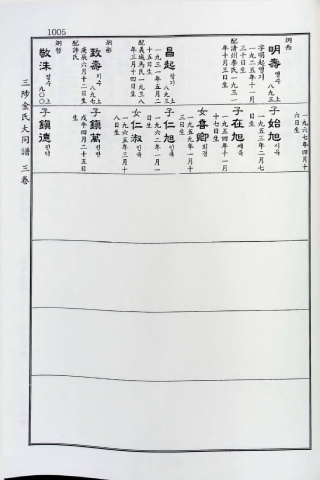 1005
一九六七年四月十
六日生
炯西
明壽 명수 八九三上
字明起 명기
一九二五年十一月
三十日生
配清州李氏一九三一
年十月三日生
子始旭 시욱
一九五三年二月七
日生
子在旭 재욱
一九五四年十一月
十七日生
女喜卿 희경
一九五九年十月
三日生
昌起 창기 八九三上
一九三一年五月二
十五日生
配義城馬氏一九三八
年三月十四日生
子仁旭 인욱
一九六二年一月一
日生
女仁淑 인숙
一九六五年三月十
八日生
炯彬
致壽 치수 八九七上
庚辰六月十二日生
配許氏
子鎭萬 진만
戊午四月二十五日
生
炯哲
敬洙 경수 九〇〇上
子鎭德 진덕
三陟金氏大同譜 三卷